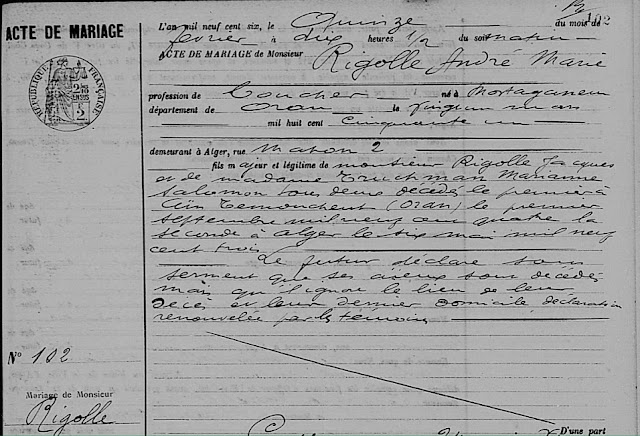 102
ACTE DE MARIAGE
RÉPUBLIQUE FRANÇAISE
2
L'an mil neuf cent six, le Quinze du mois de
fevrier à dix heures 1/2 du soir matin
ACTE DE MARIAGE de Monsieur Rigolle André Marie
profession de Cocher né à Mostaganem
département de Oran le vingt un mars
mil huit cent cinquante un
demeurant à Alger, rue Mahon 2
fils majeur et légitime de monsieur Rigolle Jacques
et de madame Truchman Marianne
Salomon tous deux décédés le premier à
Aïn Temouchent (Oran) le premier
septembre mil neuf cent quatre la
seconde à Alger le six mai mil neuf
cent trois
Le futur déclare sous
serment que ses aieux sont décédés
mais qu'il ignore le lieu de leur
décès et leur dernier domicile declaration
renouvelée par les témoins
N° 102
Mariage de Monsieur
Rigolle
D'une part